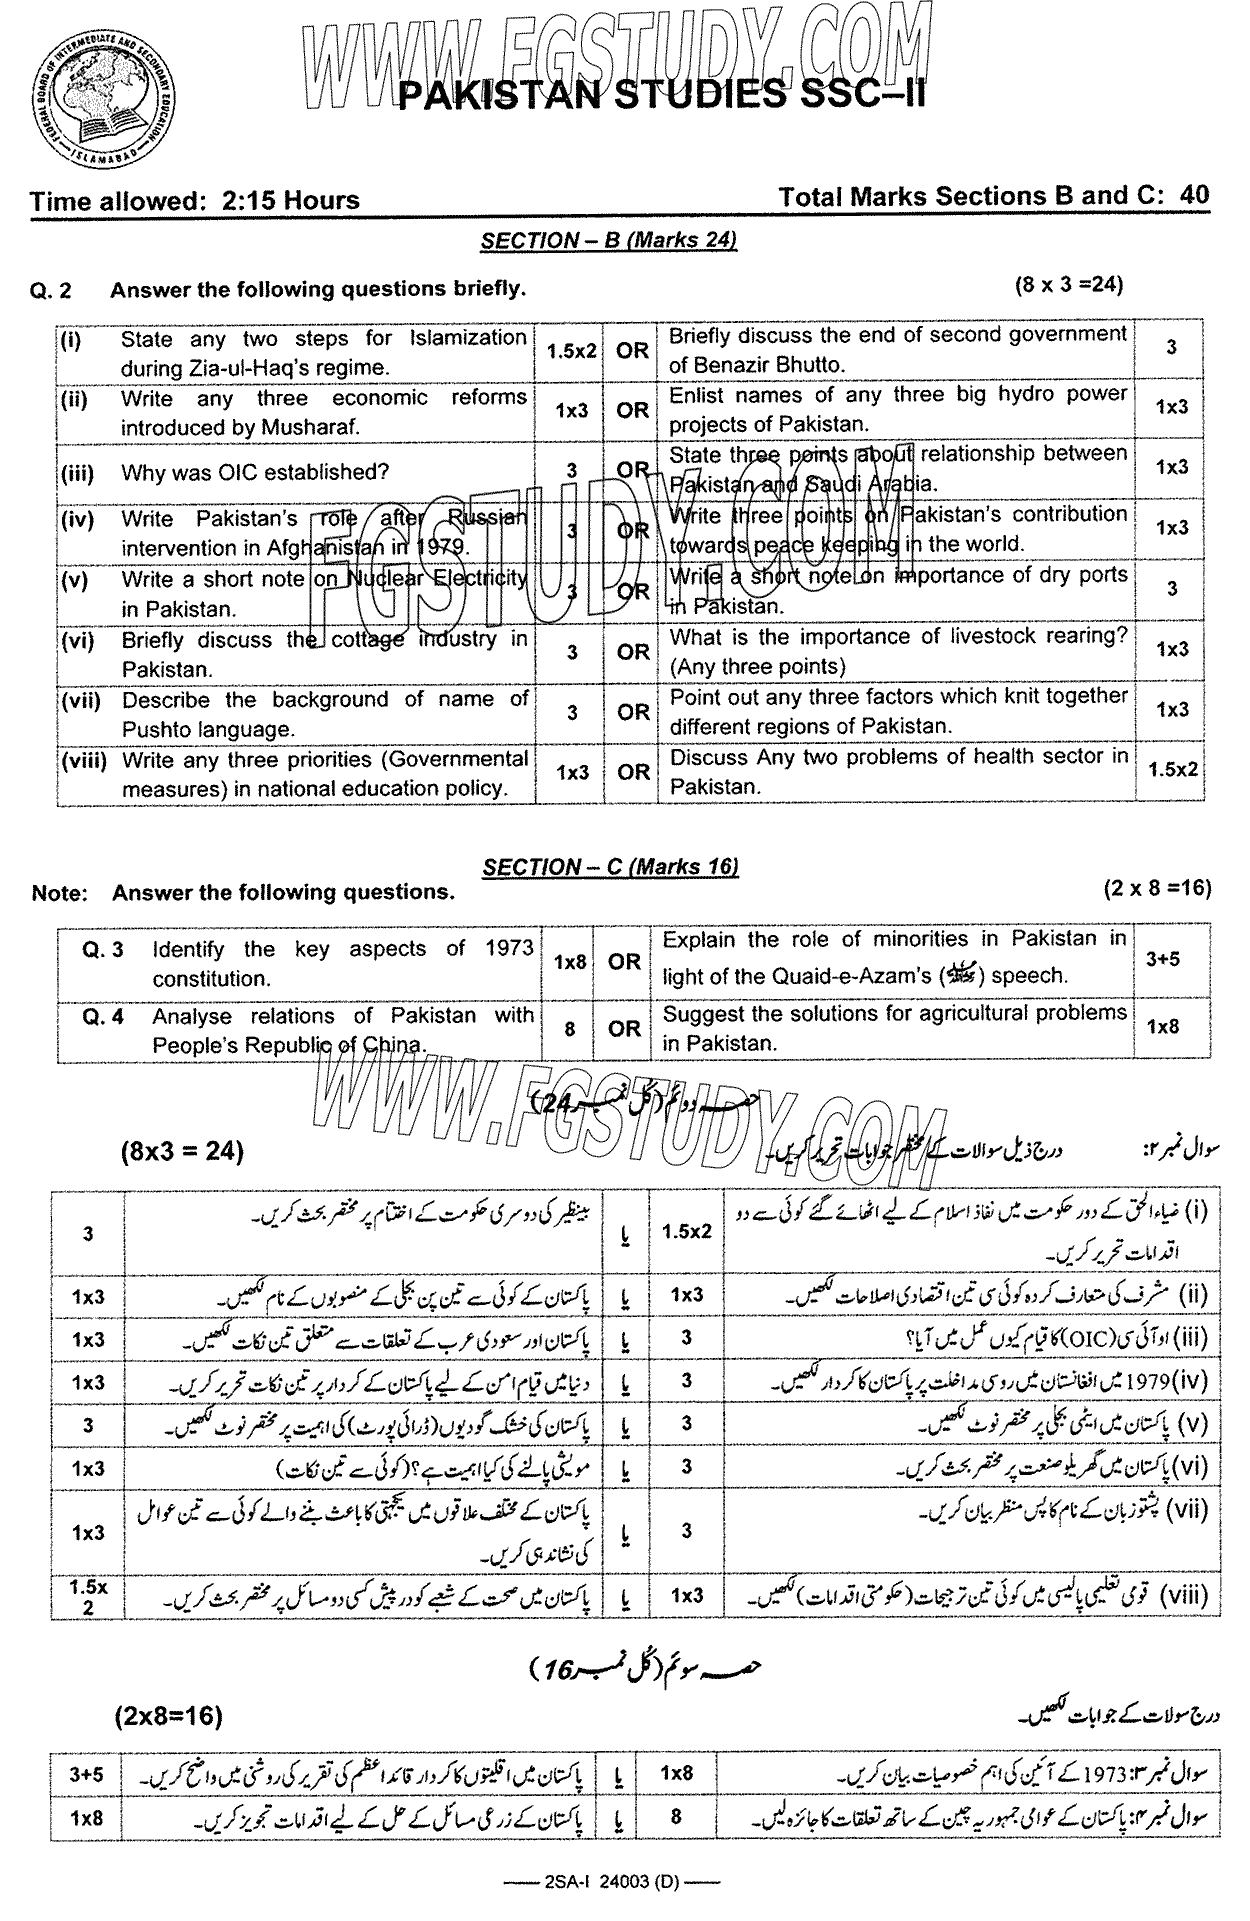 WWW.FGSTUDY.COM
FEDERAL BOARD OF INTERMEDIATE AND SECONDARY EDUCATION
ISLAMABAD
PAKISTAN STUDIES SSC–II
Time allowed: 2:15 Hours
Total Marks Sections B and C: 40
SECTION – B (Marks 24)
Q. 2 Answer the following questions briefly. (8 x 3 =24)
(i) State any two steps for Islamization during Zia-ul-Haq's regime. 1.5x2 OR Briefly discuss the end of second government of Benazir Bhutto. 3
(ii) Write any three economic reforms introduced by Musharaf. 1x3 OR Enlist names of any three big hydro power projects of Pakistan. 1x3
(iii) Why was OIC established? 3 OR State three points about relationship between Pakistan and Saudi Arabia. 1x3
(iv) Write Pakistan's role after Russian intervention in Afghanistan in 1979. 3 OR Write three points on Pakistan's contribution towards peace keeping in the world. 1x3
(v) Write a short note on Nuclear Electricity in Pakistan. 3 OR Write a short note on importance of dry ports in Pakistan. 3
(vi) Briefly discuss the cottage industry in Pakistan. 3 OR What is the importance of livestock rearing? (Any three points) 1x3
(vii) Describe the background of name of Pushto language. 3 OR Point out any three factors which knit together different regions of Pakistan. 1x3
(viii) Write any three priorities (Governmental measures) in national education policy. 1x3 OR Discuss Any two problems of health sector in Pakistan. 1.5x2
FGSTUDY.COM
SECTION – C (Marks 16)
Note: Answer the following questions. (2 x 8 =16)
Q. 3 Identify the key aspects of 1973 constitution. 1x8 OR Explain the role of minorities in Pakistan in light of the Quaid-e-Azam's () speech. 3+5
Q. 4 Analyse relations of Pakistan with People's Republic of China. 8 OR Suggest the solutions for agricultural problems in Pakistan. 1x8
WWW.FGSTUDY.COM
حصہ دوئم (کُل نمبر 24)
سوال نمبر ۲: درج ذیل سوالات کے مختصر جوابات تحریر کریں۔ (8x3 = 24)
(i) ضیاءالحق کے دور حکومت میں نفاذ اسلام کے لیے اٹھائے گئے کوئی سے دو اقدامات تحریر کریں۔ 1.5x2 یا بینظیر کی دوسری حکومت کے اختتام پر مختصر بحث کریں۔ 3
(ii) مشرف کی متعارف کردہ کوئی سی تین اقتصادی اصلاحات لکھیں۔ 1x3 یا پاکستان کے کوئی سے تین پن بجلی کے منصوبوں کے نام لکھیں۔ 1x3
(iii) او آئی سی (OIC) کا قیام کیوں عمل میں آیا؟ 3 یا پاکستان اور سعودی عرب کے تعلقات سے متعلق تین نکات لکھیں۔ 1x3
(iv) 1979 میں افغانستان میں روسی مداخلت پر پاکستان کا کردار لکھیں۔ 3 یا دنیا میں قیام امن کے لیے پاکستان کے کردار پر تین نکات تحریر کریں۔ 1x3
(v) پاکستان میں ایٹمی بجلی پر مختصر نوٹ لکھیں۔ 3 یا پاکستان کی خشک گودیوں (ڈرائی پورٹ) کی اہمیت پر مختصر نوٹ لکھیں۔ 3
(vi) پاکستان میں گھریلو صنعت پر مختصر بحث کریں۔ 3 یا مویشی پالنے کی کیا اہمیت ہے؟ (کوئی سے تین نکات) 1x3
(vii) پشتو زبان کے نام کا پس منظر بیان کریں۔ 3 یا پاکستان کے مختلف علاقوں میں یکجہتی کا باعث بننے والے کوئی سے تین عوامل کی نشاندہی کریں۔ 1x3
(viii) قومی تعلیمی پالیسی میں کوئی تین ترجیحات (حکومتی اقدامات) لکھیں۔ 1x3 یا پاکستان میں صحت کے شعبے کو درپیش کسی دو مسائل پر مختصر بحث کریں۔ 1.5x2
حصہ سوئم (کُل نمبر 16)
درج سولات کے جوابات لکھیں۔ (2x8=16)
سوال نمبر ۳: 1973 کے آئین کی اہم خصوصیات بیان کریں۔ 1x8 یا پاکستان میں اقلیتوں کا کردار قائد اعظم کی تقریر کی روشنی میں واضح کریں۔ 3+5
سوال نمبر ۴: پاکستان کے عوامی جمہوریہ چین کے ساتھ تعلقات کا جائزہ لیں۔ 8 یا پاکستان کے زرعی مسائل کے حل کے لیے اقدامات تجویز کریں۔ 1x8
—— 2SA-I 24003 (D) ——